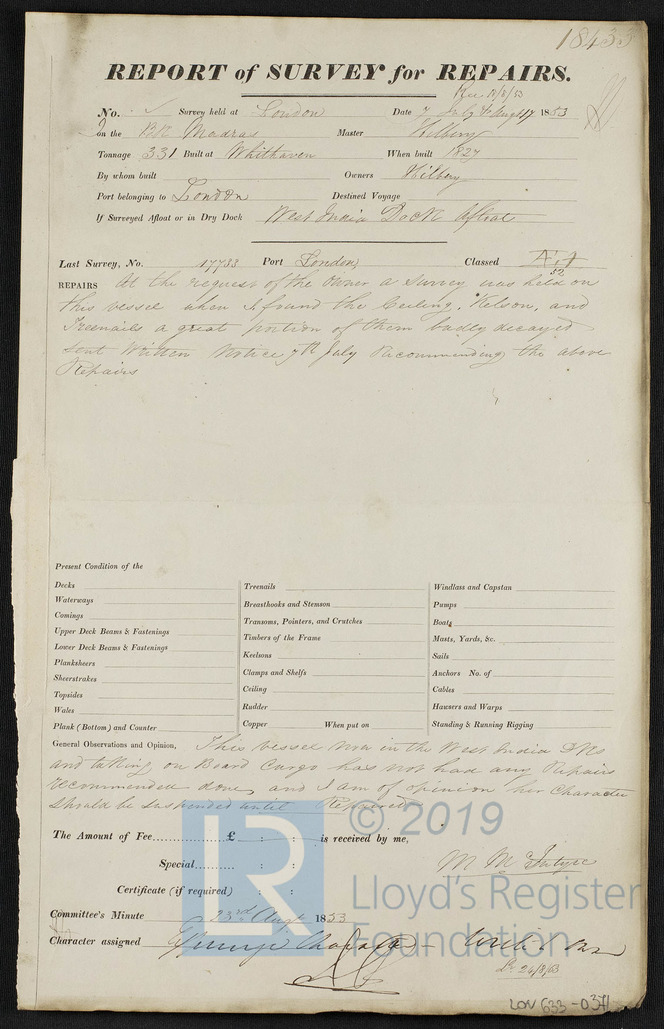 18433
REPORT of SURVEY for REPAIRS.
Rec 18/8/53
No. Survey held at London Date 7 July & Augt 17 1853
on the Bk Madras Master Hilbery
Tonnage 331 Built at Whithaven When built 1827
By whom built Owners Hilbery
Port belonging to London Destined Voyage
If Surveyed Afloat or in Dry Dock West India Dock Afloat
Last Survey, No. 17733 Port London Classed
52
REPAIRS At the request of the Owner a Survey was held on
this vessel when I found the Ceiling, Kelson, and
Treenails a great portion of them badly decayed
sent Written Notice 7th July Recommending the above
Repairs
Present Condition of the
Decks Treenails Windlass and Capstan
Waterways Breasthooks and Stemson Pumps
Comings Transoms, Pointers, and Crutches Boats
Upper Deck Beams & Fastenings Timbers of the Frame Masts, Yards, &c.
Lower Deck Beams & Fastenings Keelsons Sails
Planksheers Clamps and Shelfs Anchors No. of
Sheerstrakes Ceiling Cables
Topsides Rudder Hawsers and Warps
Wales Copper When put on Standing & Running Rigging
Plank (Bottom) and Counter
General Observations and Opinion, This vessel now in the West India Dks
and taking on Board Cargo has not had any Repairs
recommended done, and I am of opinion her Character
should be suspended until Repaired
The Amount of Fee............... £ : : is received by me,
Special.......... : :
Certificate (if required) : :
Committee's Minute 23rd Augt 1853
Character assigned
24/8/53
LON 633-0371
© 2019
LR
Lloyd's Register
Foundation